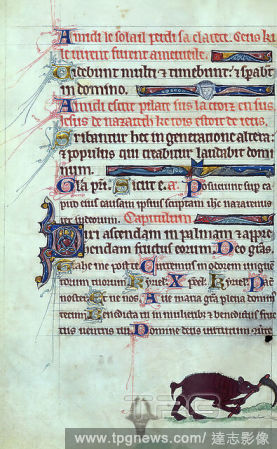 A midi le solail perdi sa clartet. Cens ki
le virent furent
Videbunt multi et timebunt: et spabunt
in domino.
A midi escut pilats sus la crois en sus
iesus de nazareth
scribantur hec in generatione altera:
et populus qui creabitur laudabit domi
num.
Gla pri. Sicut e.a. Posuerunt sup ca
put eius causam ipsius scriptam ihc nazarenus
rex iudeorum. Capitulum
Dixi ascendam in palmam et appre
hendam fructus eorum. Deo gras.
Trahe me post te Curremus in odorem unguen
torum tuorum Kyriel. Xpeel. Kyriel. Pater
noster. Et ne nos. Aue maria gra plena domin9
tecum. Benedicta tu in mulieribus et benedictus fruc
tus uentris tui Domine deus
www.tpgnews.com / 達志影像